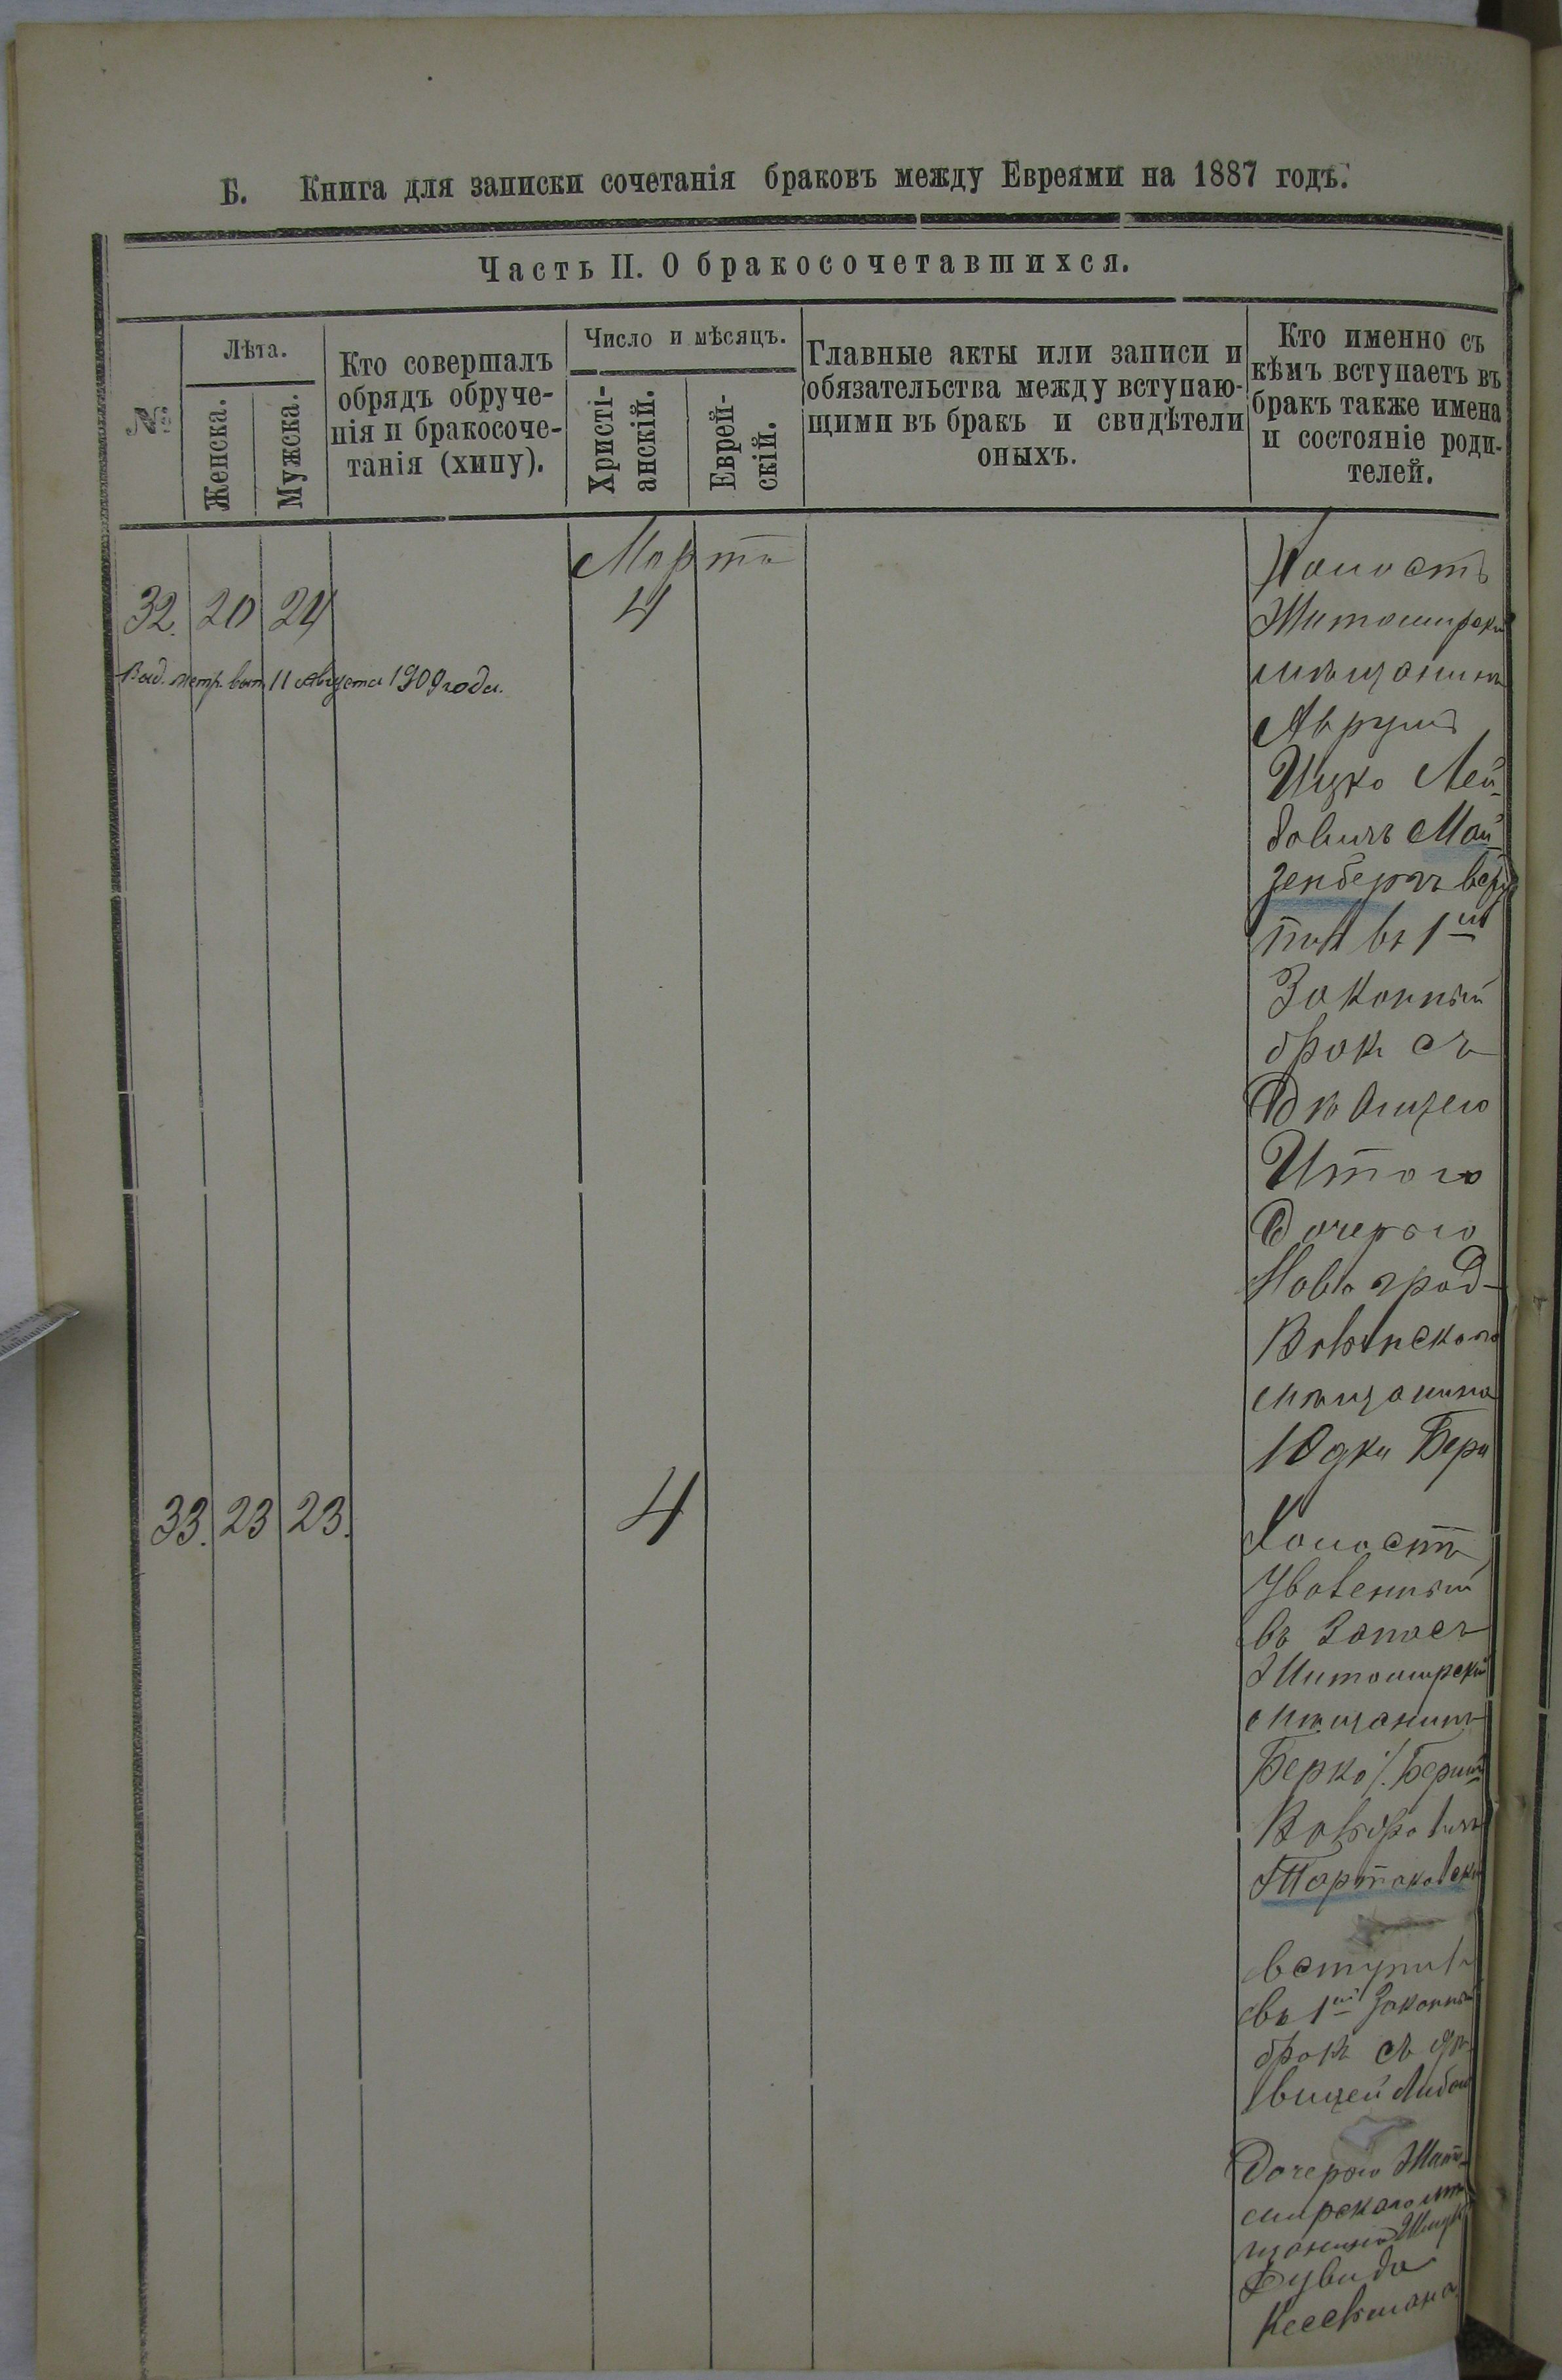 Б. Книга для записки сочетанія браковъ между Евреями на 1887 годъ.
Часть II. О бракосочетавшихся.
№
Лѣта.
Женска.
Мужска.
Кто совершалъ
обрядъ обруче-
нія и бракосоче-
танія (хипу).
Число и мѣсяцъ.
Христі-
анскій.
Еврей-
скій.
Главные акты или записи и
обязательства между вступаю-
щими въ бракъ и свидѣтели
оныхъ.
Кто именно съ
кѣмъ вступаетъ въ
бракъ также имена
и состояніе роди-
телей.
Марта
32. 20 24 4
Выд. метр. вып. 11 Августа 1909 года.
Холостъ
Житомирскій
мѣщанинъ
Аврумъ
Ицко Лей-
бовичъ Май-
зенбергъ всту
пилъ въ 1ый
Законный
бракъ съ
Дѣвицею
Итою
Дочерью
Новоград-
Волынскаго
мѣщанина
Юдки Бера
33. 23 23. 4
Холостъ
Уволенный
въ Запасъ
Житомирскій
мѣщанинъ
Берко /. Беришъ
Волфовичъ
Тартаковскій
вступилъ
въ 1ый Законный
бракъ съ дѣ-
вицей Либою
Дочерью Жито-
мирскаго мѣ
щанина
Дувида
Кесельмана